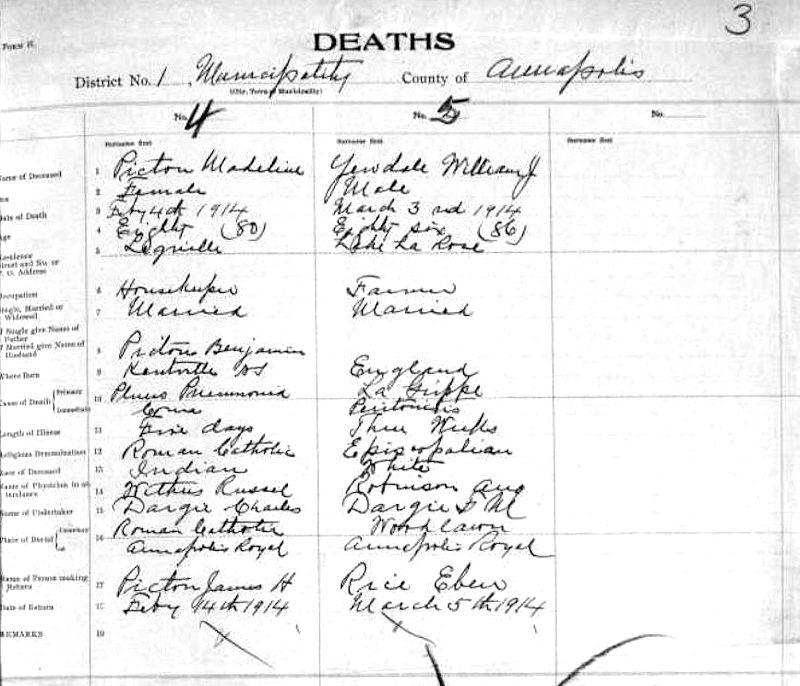 3
FORM II.
DEATHS
District No. 1, Municipality County of Annapolis
(City, Town or Municipality)
No. 4 No. 5 No.
Surname first Surname first Surname first
Name of Deceased 1 Picton Madeline Yewdale William J
Sex 2 Female Male
Date of Death 3 Feby 4th 1914 March 3rd 1914
Age 4 Eighty (80) Eighty six (86)
Residence 5 Lequille Lake La Rose
Street and No. or
P. O. Address
Occupation 6 Housekeeper Farmer
Single, Married or 7 Married Married
Widowed
If Single give Name of
Father
If Married give Name of 8 Pictou Benjamin
Husband
Where Born 9 Kentville NS England
Cause of Death Primary 10 Pneumonia La Grippe
Immediate Coma Peritonitis
Length of Illness 11 Five days Three Weeks
Religious Denomination 12 Roman Catholic Episcopalian
Race of Deceased 13 Indian White
Name of Physician in at- 14 Withers Russel Robinson Aug
tendance
Name of Undertaker 15 Dargie Charles Dargie F M
Place of Burial Cemetery 16 Roman Catholic Woodlawn
at Annapolis Royal Annapolis Royal
Name of Person making 17 Picton James H Rice Eben
Return
Date of Return 18 Feby 14th 1914 March 5th 1914
REMARKS 19